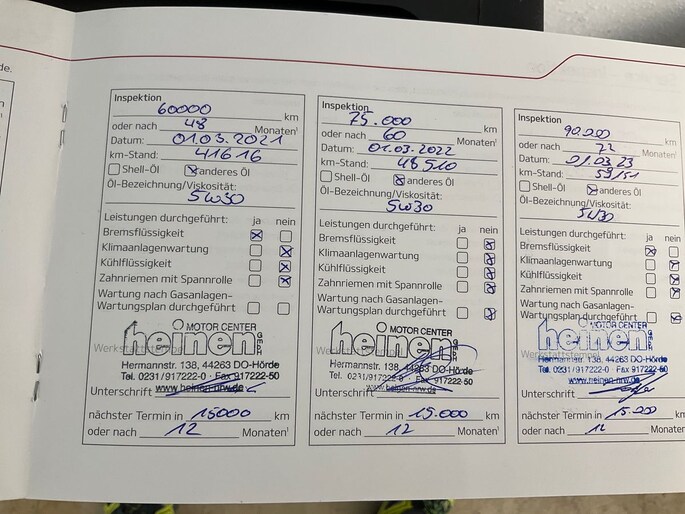 de.
Inspektion
60000 km
oder nach 48 Monaten¹
Datum: 01.03.2021
km-Stand: 41616
Shell-Öl anderes Öl
Öl-Bezeichnung/Viskosität:
5W30
Leistungen durchgeführt: ja nein
Bremsflüssigkeit
Klimaanlagenwartung
Kühlflüssigkeit
Zahnriemen mit Spannrolle
Wartung nach Gasanlagen-
Wartungsplan durchgeführt
Werkstattstempel
MOTOR CENTER
heinen GMBH
Hermannstr. 138, 44263 DO-Hörde
Tel. 0231/917222-0 · Fax 917222-50
www.heinen-nrw.de
Unterschrift
nächster Termin in 15000 km
oder nach 12 Monaten¹
Inspektion
75.000 km
oder nach 60 Monaten¹
Datum: 01.03.2022
km-Stand: 48510
Shell-Öl anderes Öl
Öl-Bezeichnung/Viskosität:
5W30
Leistungen durchgeführt: ja nein
Bremsflüssigkeit
Klimaanlagenwartung
Kühlflüssigkeit
Zahnriemen mit Spannrolle
Wartung nach Gasanlagen-
Wartungsplan durchgeführt
MOTOR CENTER
heinen GMBH
Hermannstr. 138, 44263 DO-Hörde
Tel. 0231/917222-0 · Fax 917222-50
www.heinen-nrw.de
Unterschrift
nächster Termin in 15.000 km
oder nach 12 Monaten¹
Inspektion
90.000 km
oder nach 72 Monaten¹
Datum: 01.03.23
km-Stand:
Shell-Öl anderes Öl
Öl-Bezeichnung/Viskosität:
5W30
Leistungen durchgeführt: ja nein
Bremsflüssigkeit
Klimaanlagenwartung
Kühlflüssigkeit
Zahnriemen mit Spannrolle
Wartung nach Gasanlagen-
Wartungsplan durchgeführt
Werkstattstempel
MOTOR CENTER
heinen GMBH
Hermannstr. 138, 44263 DO-Hörde
Tel. 0231/917222-0 · Fax 917222-50
www.heinen-nrw.de
Unterschrift
nächster Termin in 15.000 km
oder nach 12 Monaten¹